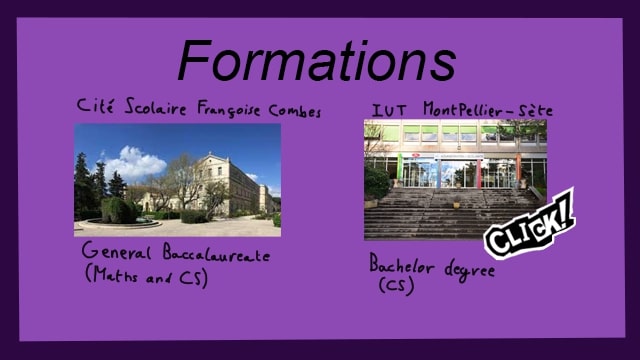 Formations
Cité Scolaire Françoise Combes
General Baccalaureate
(Maths and CS)
IUT MontPellier-Sète
CLICK!!
Bachelor degree
(CS)